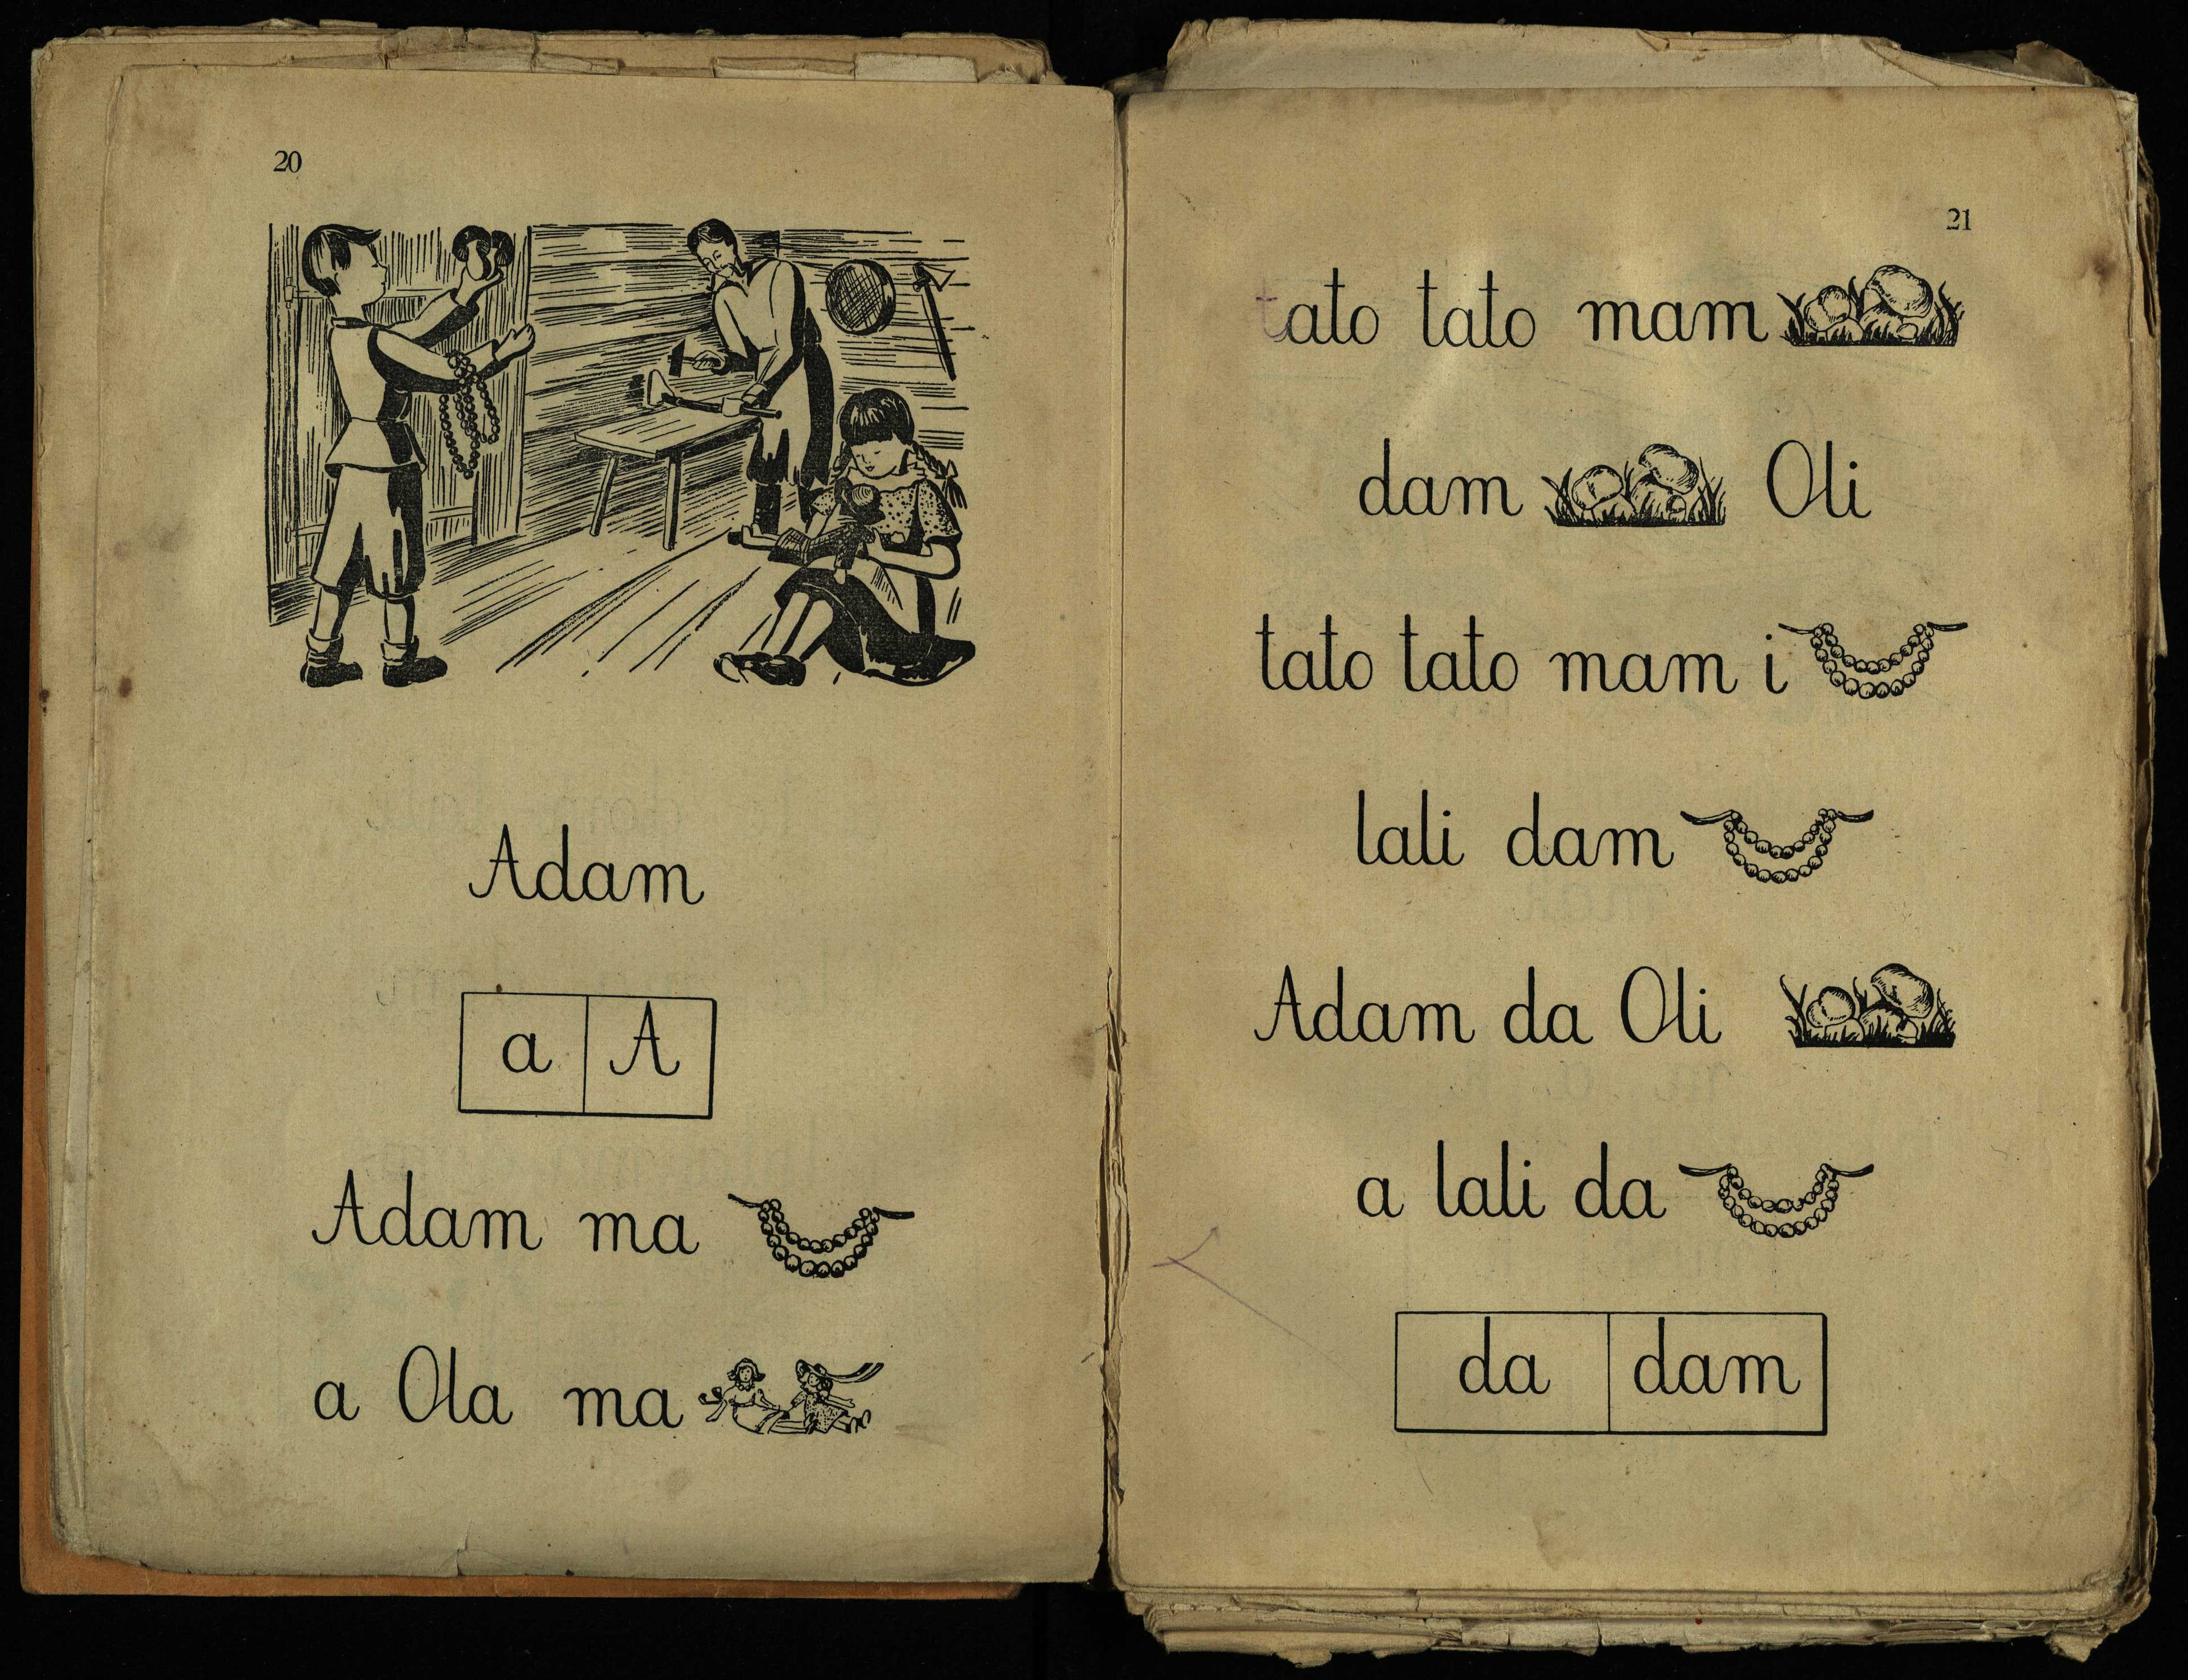 20
Adam
a A
Adam ma
a Ola ma
21
tato tato mam
dam Oli
tato tato mam i
lali dam
Adam da Oli
a lali da
da dam